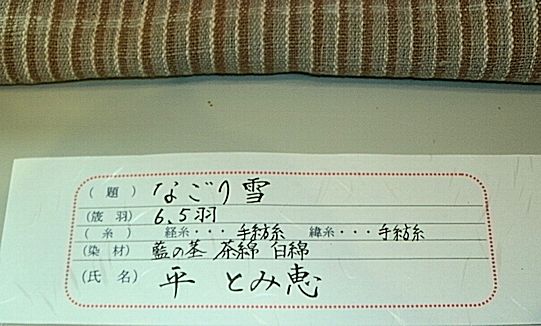 (題) なごり雪
(筬羽) 6.5羽
(糸) 経糸・・・手紡糸 緯糸・・・手紡糸
(染材) 藍の茎 茶綿 白綿
(氏名) 平 とみ恵